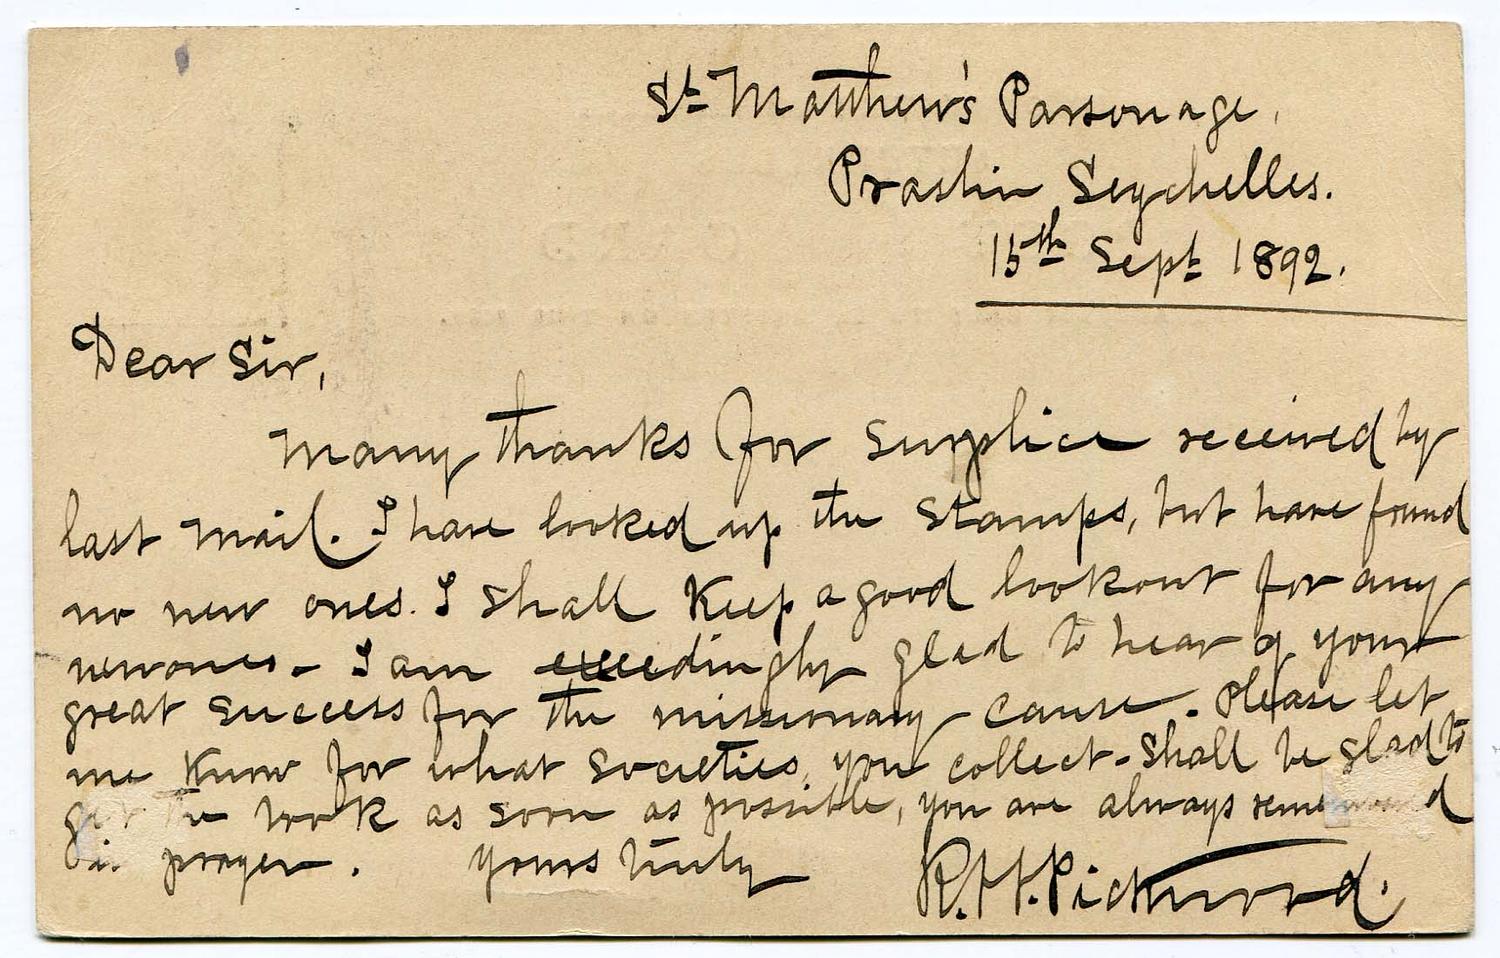 St Matthew's Parsonage,
Praslin Seychelles.
15th Sept 1892.
Dear Sir,
Many thanks for surplice received by
last mail. I have looked up the stamps, but have found
no new ones. I shall keep a good lookout for any
new ones - I am exceedingly glad to hear of your
great success for the missionary cause. Please let
me know for what societies you collect - Shall be glad to
get the work as soon as possible, you are always
in prayer. Yours truly
R. H. Pickwood.